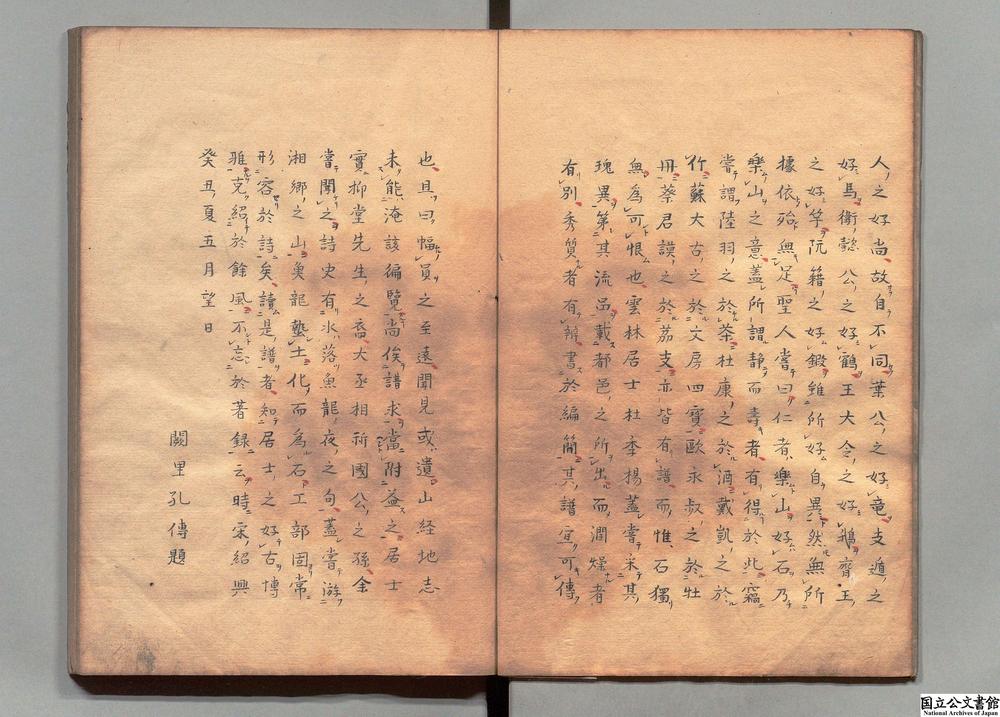 人之好尚故自不同葉公之好竜支遁之
好馬衛懿公之好鶴王大令之好鵝齊王
之好竽阮籍之好鍛雖所好自異然無所
據依殆無足聖人嘗曰仁者樂山好石乃
樂山之意蓋所謂静而壽者有得於此竊
嘗謂陸羽之於茶杜康之於酒戴凱之於
竹蘇大古之於文房四寳歐永叔之於牡
丹蔡君謨之於荔支亦皆有譜而惟石獨
無為可恨也雲林居士杜季揚蓋嘗采其
瑰異第其流品載都邑之所出而潤燥者
有別秀質者有辯書於編簡其譜宜可傳
也且曰幅員之至遠聞見或遺山経地志
未能淹該徧覽尚俟譜求當附益之居士
實抑堂先生之裔大丞相祈國公之孫余
嘗聞之詩史有水落魚龍夜之句蓋嘗游
湘郷之山奠龍蟄土化而為石工部固常
形容於詩矣讀是譜者知居士之好古博
雅克紹於餘風不忘於著録云時宋紹興
癸丑夏五月望日
闕里孔傳題
国立公文書館
National Archives of Japan